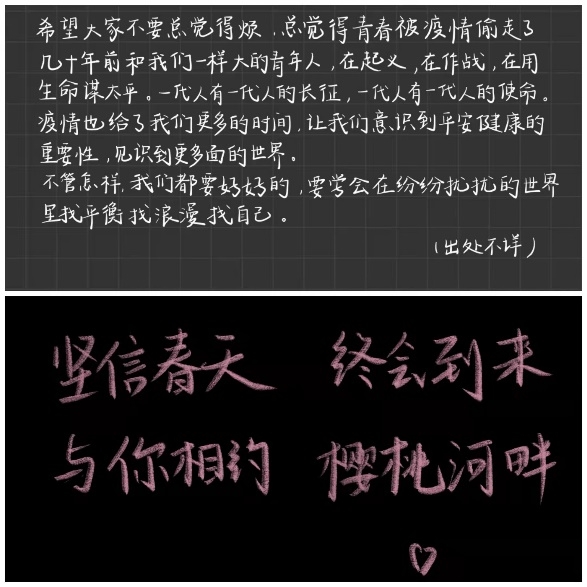 希望大家不要总觉得烦，总觉得青春被疫情偷走了
几十年前和我们一样大的青年人，在起义，在作战，在用
生命谋太平。一代人有一代人的长征，一代人有一代人的使命。
疫情也给了我们更多的时间，让我们意识到平安健康的
重要性，见识到更多面的世界。
不管怎样，我们都要好好的，要学会在纷纷扰扰的世界
里找平衡找浪漫找自己。
（出处不详）
坚信春天 终会到来
与你相约 樱桃河畔